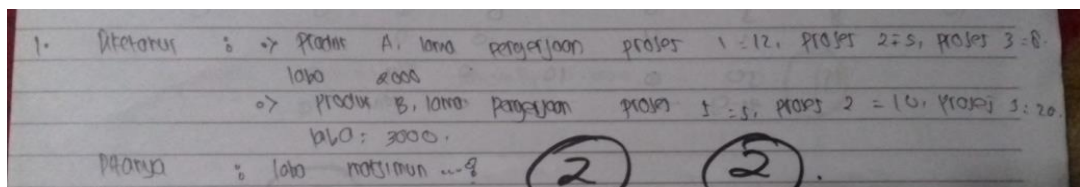 1. Diketahui : => Produk A, lama pengerjaan proses 1 = 12, proses 2 = 5, proses 3 = 8.
laba 2000
=> produk B, lama pengerjaan proses 1 = 5, proses 2 = 10, proses 3 : 20.
laba : 3000.
Ditanya : laba maksimun ...?
2 2.